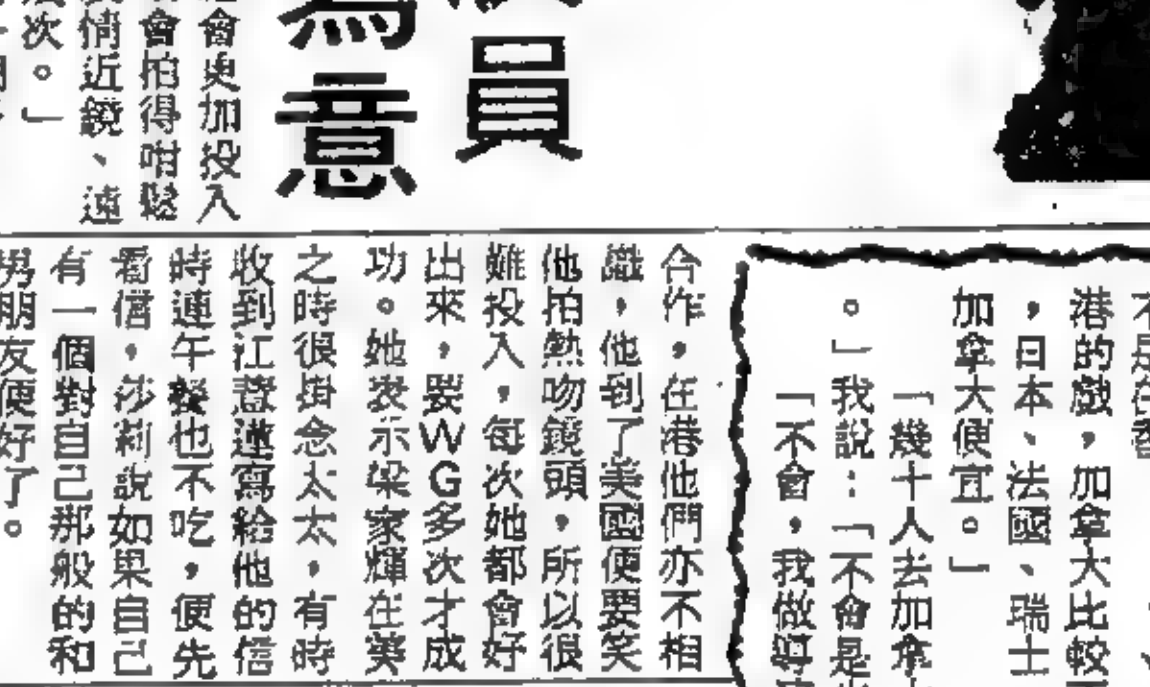 員
意
會更加投入
會拍得咁鬆
情近鏡、遠
次。」
合作，在港他們亦不相
識，他到了美國便要笑
他拍熱吻鏡頭，所以很
難投入，每次她都會好
出來，要WG多次才成
功。她表示梁家輝在英
之時很掛念太太，有時
收到江蓉蓮寫給他的信
時連午餐也不吃，便先
看信，莎莉說如果自己
有一個對自己那般的和
男朋友便好了。
不是在香
港的戲，加拿大比較
，日本、法國、瑞士
加拿大便宜。」
「幾十人去加拿
。」我說：「不會是
「不會，我做導